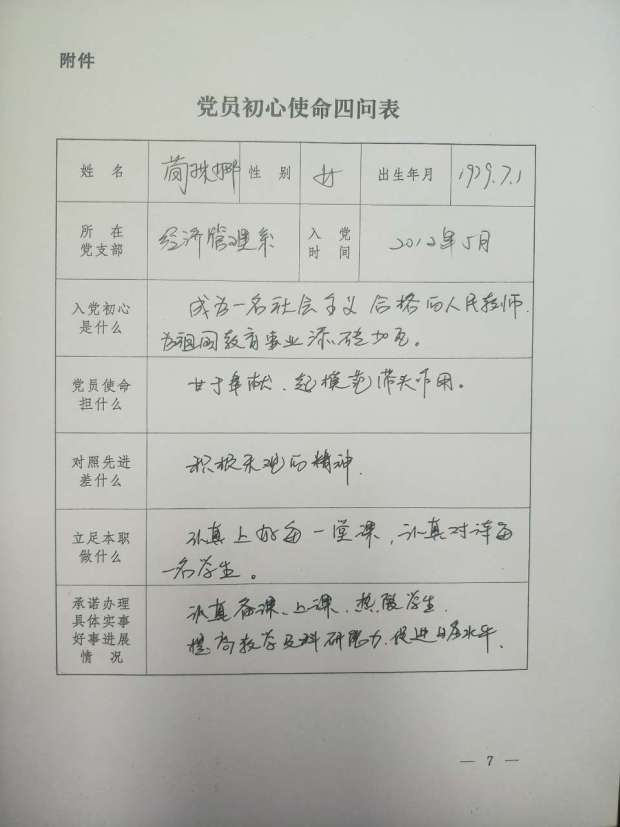 附件
党员初心使命四问表
姓 名 性 别 女 出生年月 1979.7.1
所 在 党支部 经济管理系 入 党 时 间 2012年5月
入党初心 是什么 成为一名社会主义合格的人民教师,
为祖国教育事业添砖加瓦。
党员使命 担什么 甘于奉献、起模范带头作用。
对照先进 差什么 积极乐观的精神.
立足本职 做什么 认真上好每一堂课,认真对待每
一名学生。
承诺办理 具体实事 好事进展 情 况 认真备课、上课,热爱学生.
提高教学及科研能力,促进自身水平.
— 7 —